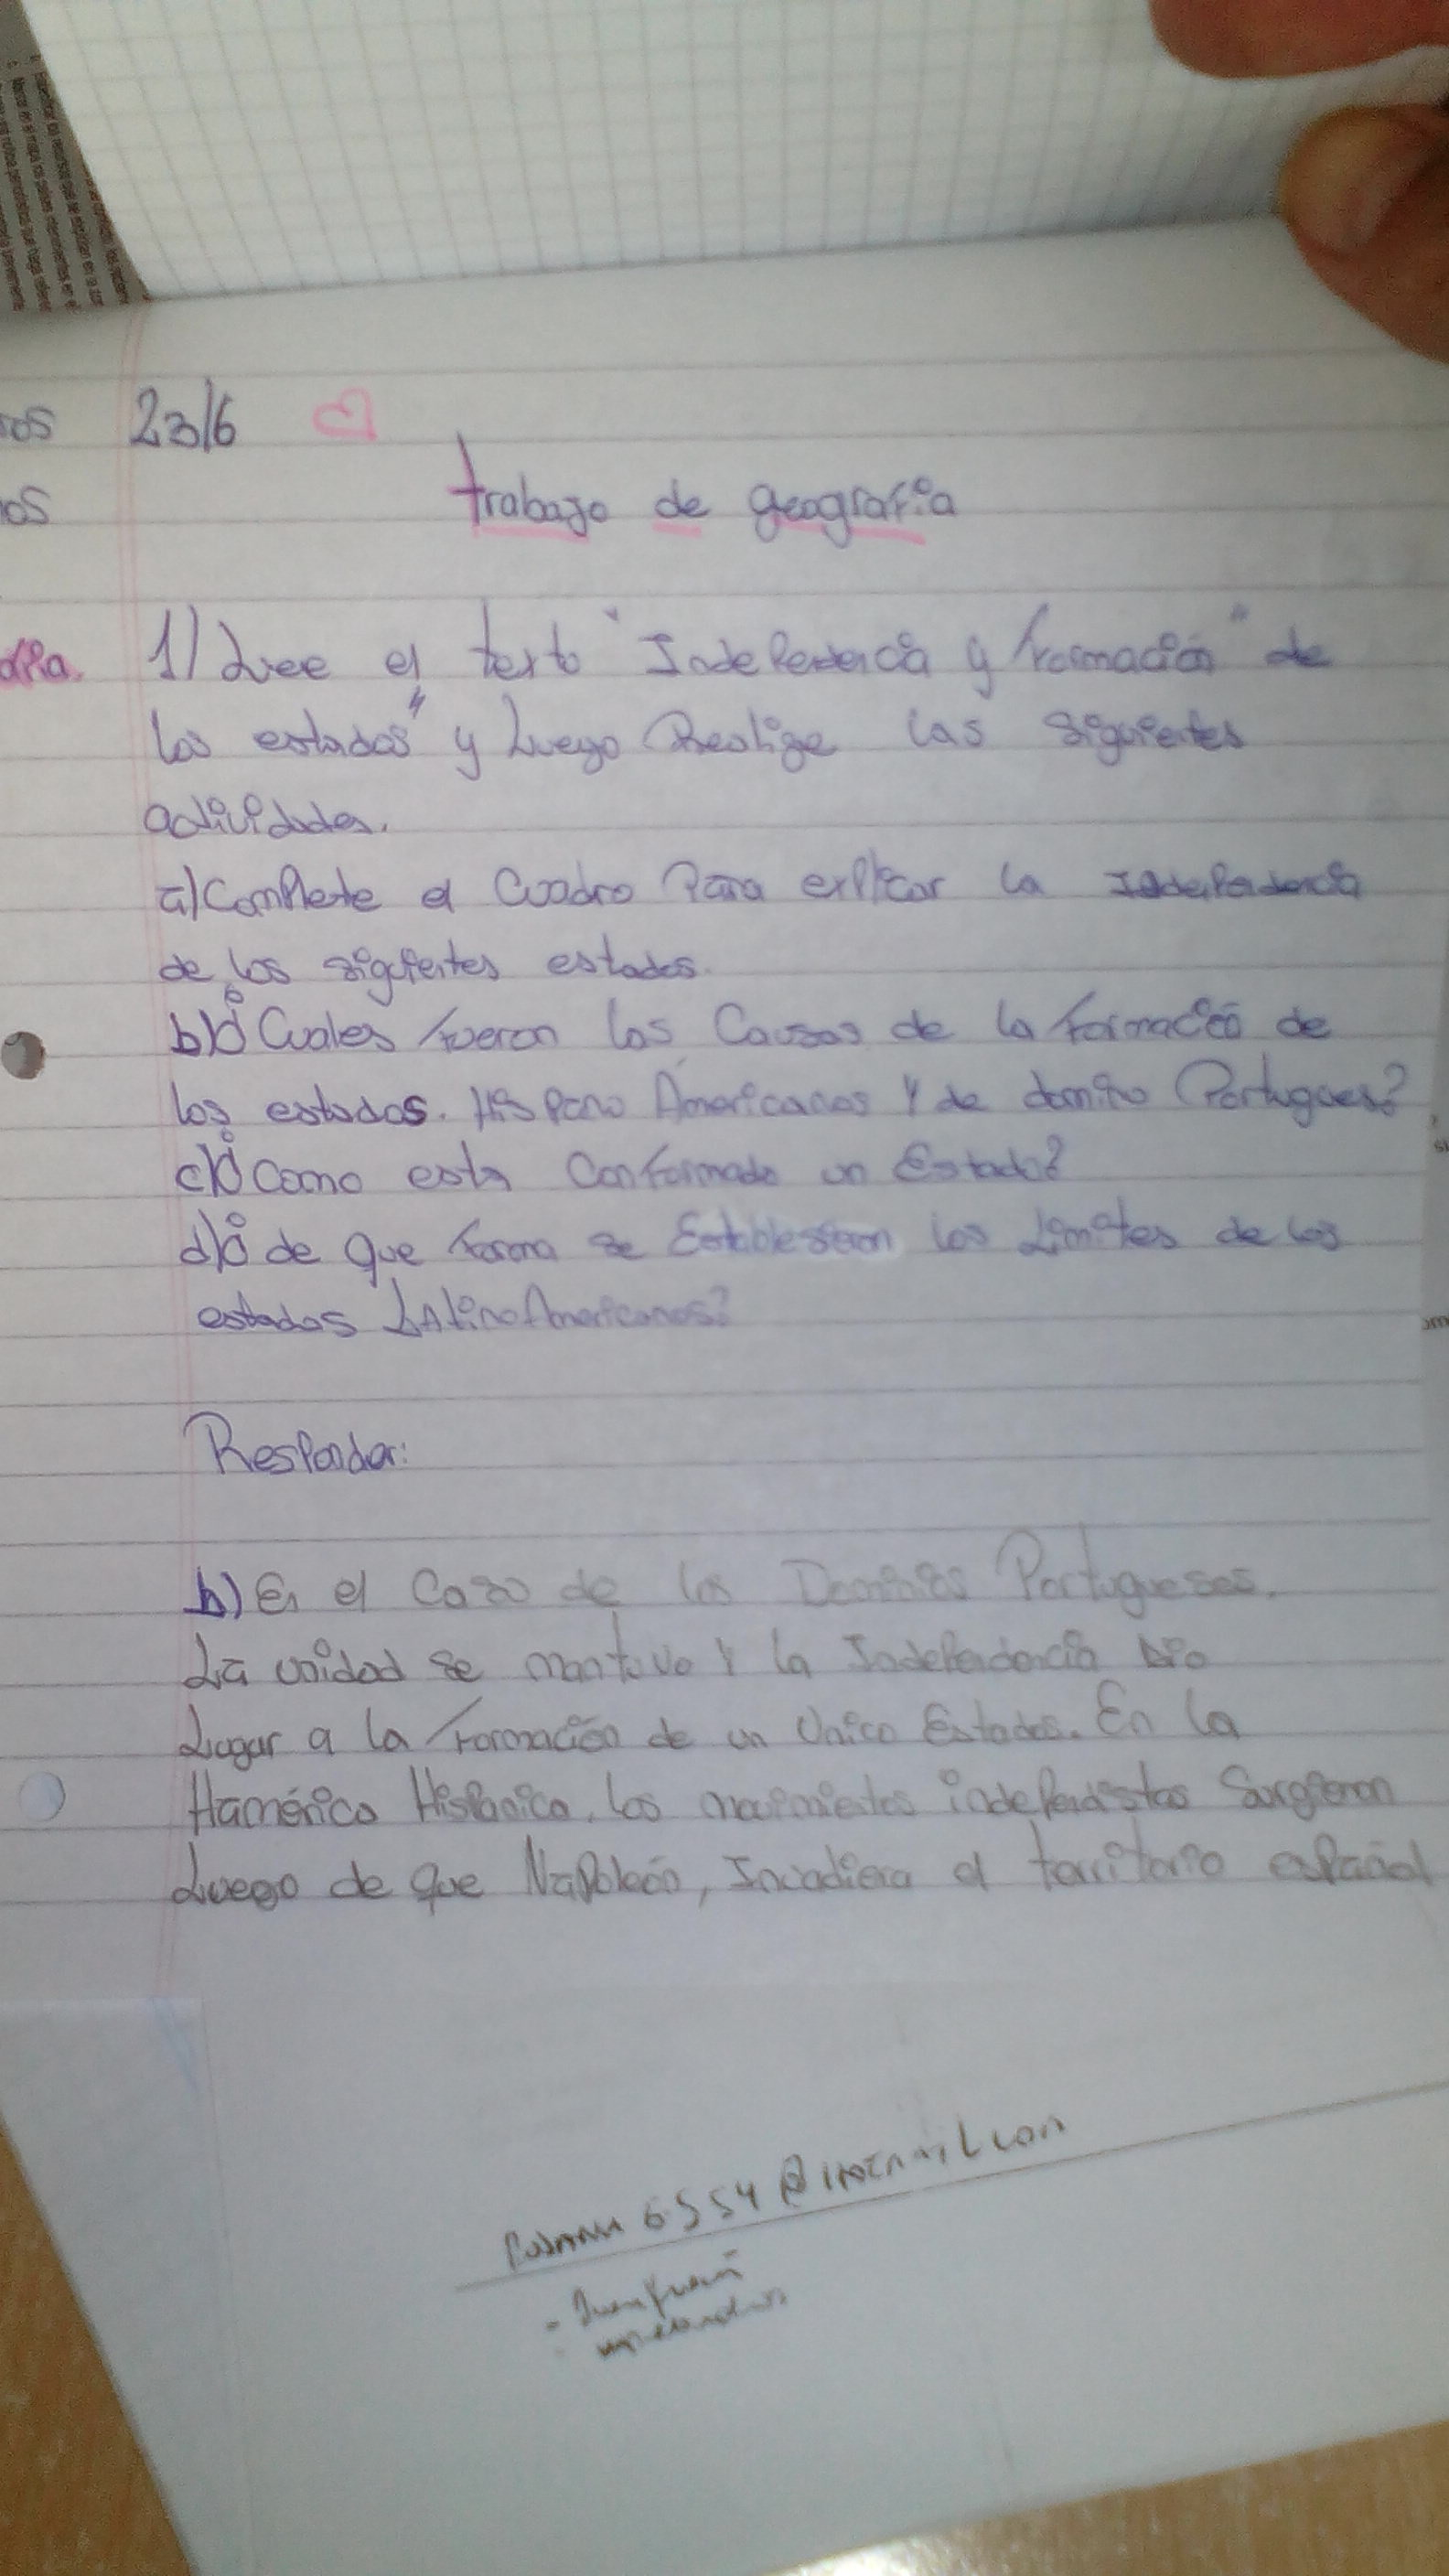 23/6
trabajo de geografia
1) Lee el texto "Independencia y formación" de
los estados" y Luego Realize las siguientes
actividades.
a) Complete el Cuadro Para explicar la Independencia
de los siguientes estados.
b) ¿Cuales fueron las Causas de la formació de
los estados. Hispano Americanos Y de domino Portugues?
c) ¿Como esta Conformado un Estado?
d) ¿de que forma se Establesieron los Limites de los
estados LatinoAmericanos?
Responder:
b) En el Caso de los Dominios Portugueses.
La unidad se mantuvo Y la Independencia Dio
Lugar a la formación de un Unico Estados. En la
Hamérica Hispanica. los movimientos independistas Surgieron
Luego de que Napoleón, Invadiera el territorio español
6554@